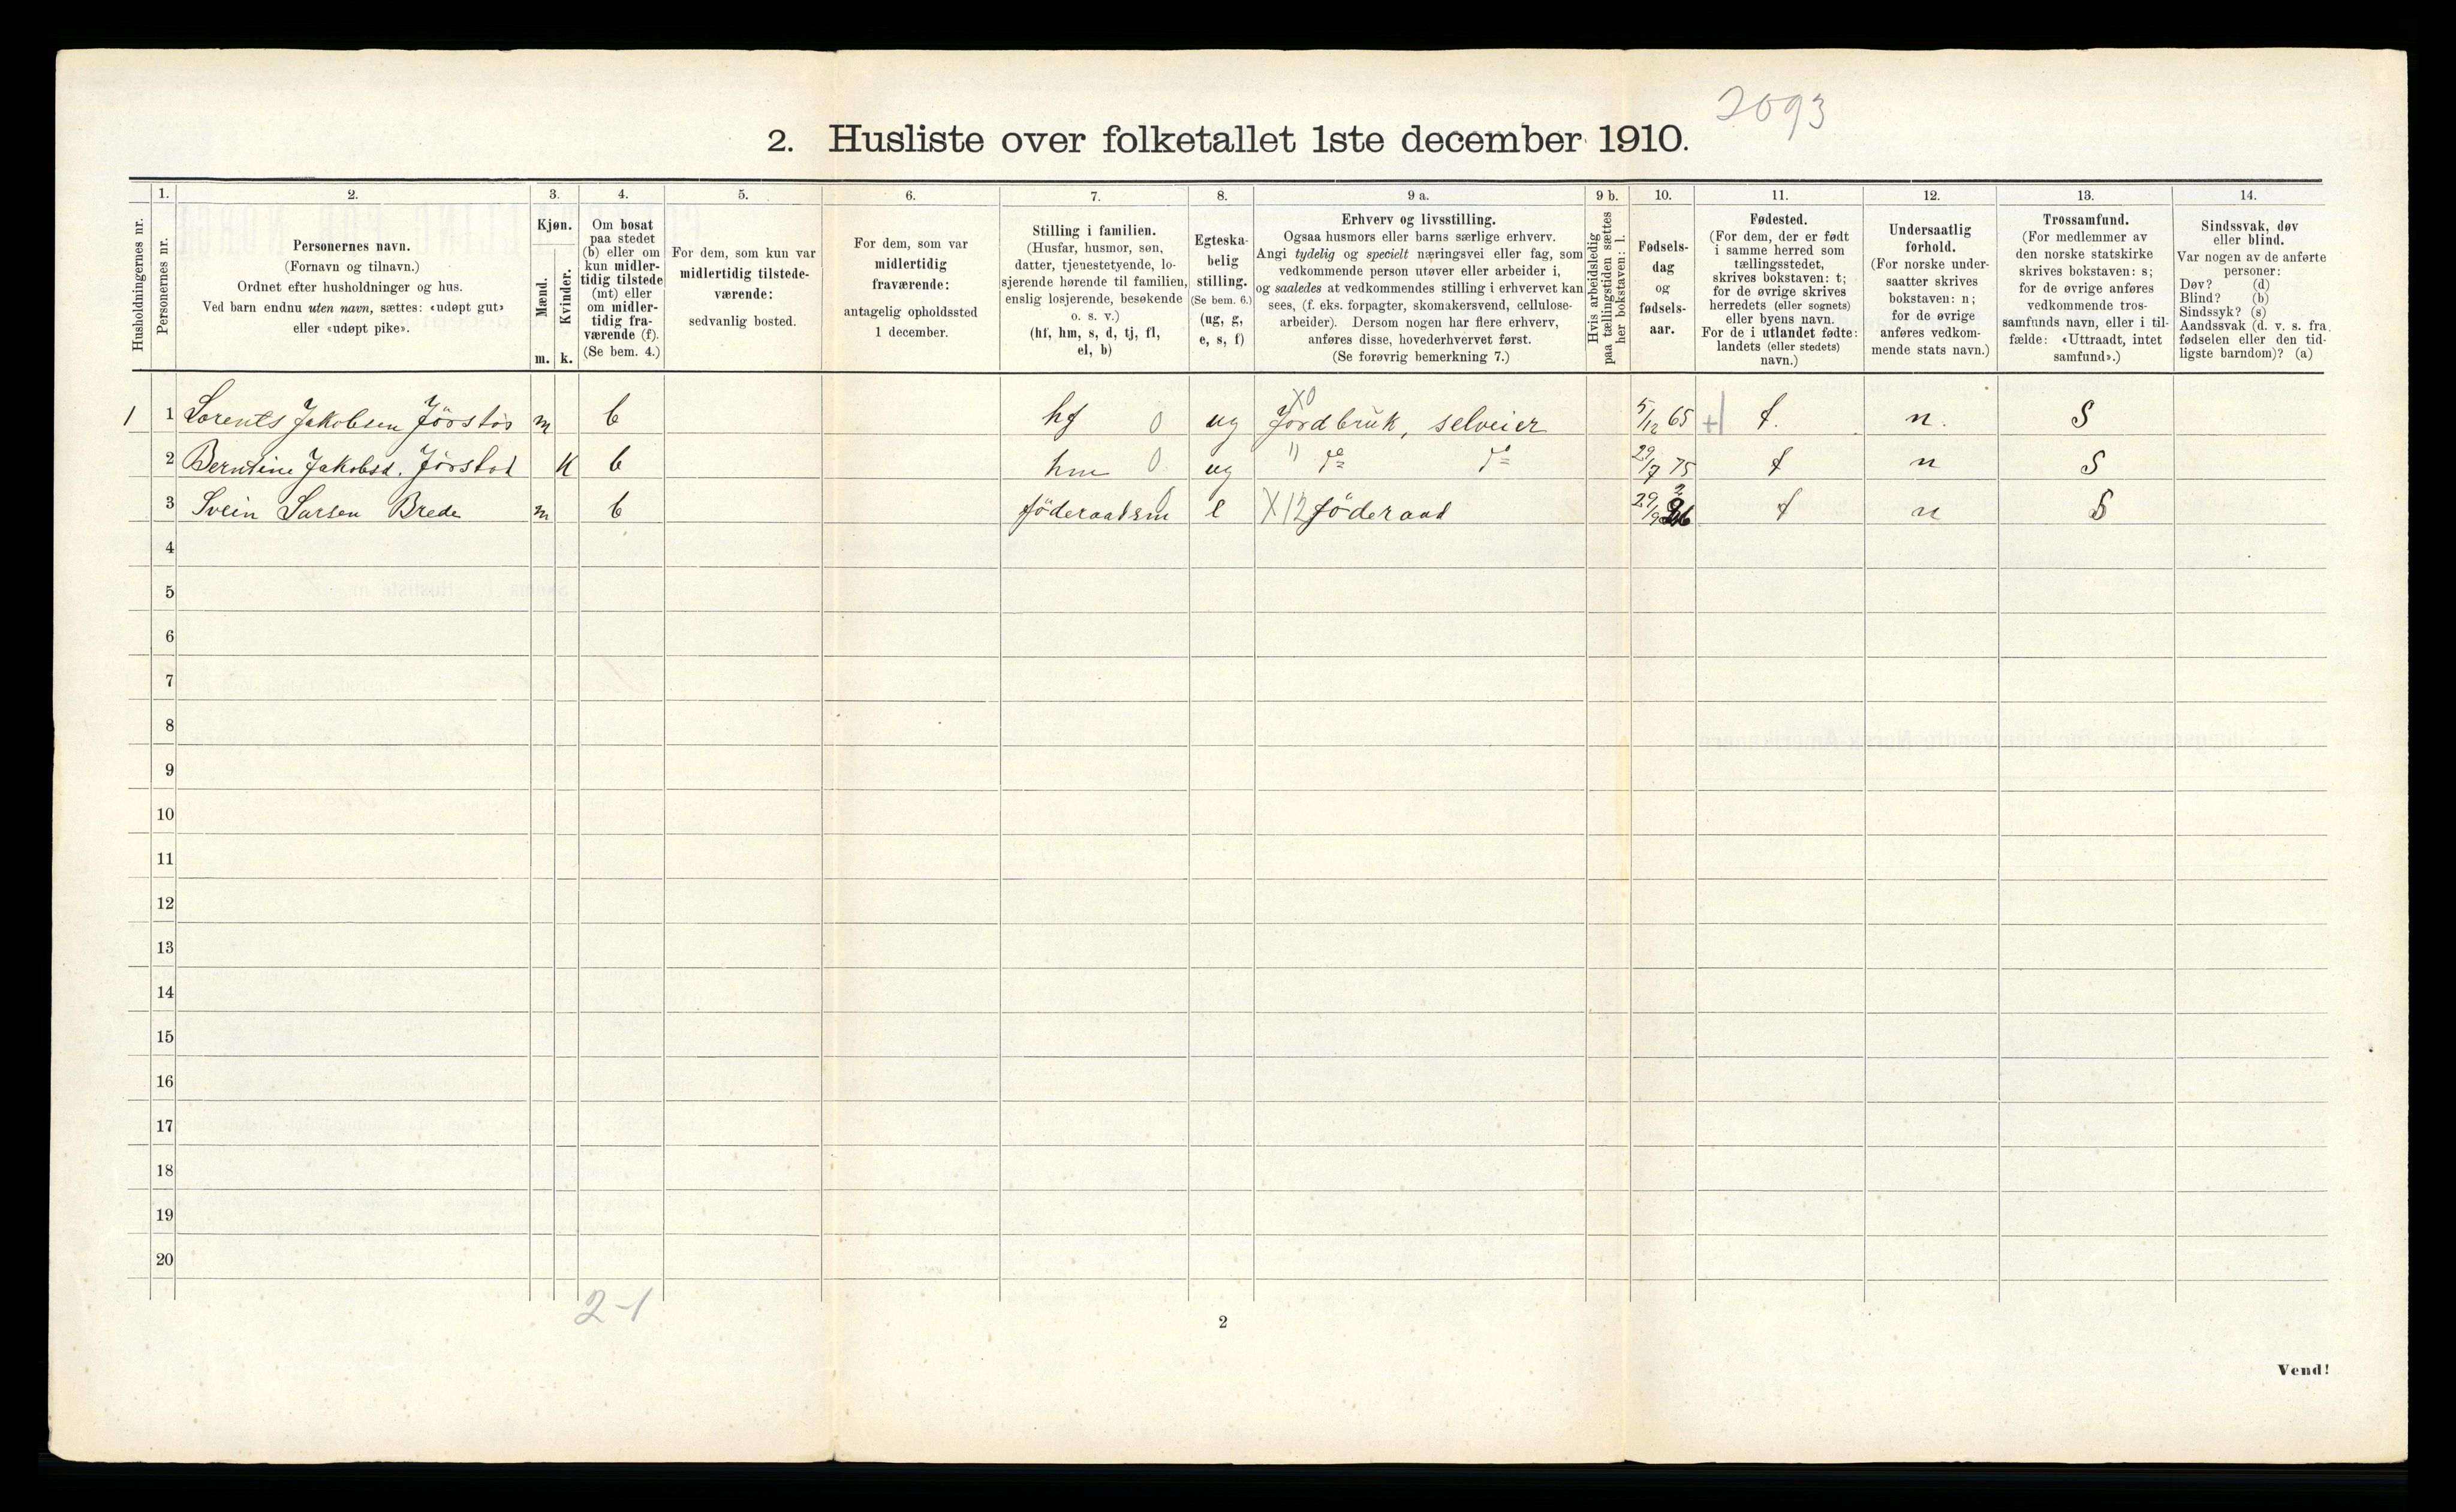 2093
2. Husliste over folketallet 1ste december 1910.
Husholdningernes nr.
1.
Personernes nr.
2.
Personernes navn.
(Fornavn og tilnavn.)
Ordnet efter husholdninger og hus.
Ved barn endnu uten navn, sættes: «udøpt gut»
eller «udøpt pike».
3.
Kjøn.
Mænd.
Kvinder.
m. k.
4.
Om bosat
paa stedet
(b) eller om
kun midler-
tidig tilstede
(mt) eller
om midler-
tidig fra-
værende (f).
(Se bem. 4.)
5.
For dem, som kun var
midlertidig tilstede-
værende:
sedvanlig bosted.
6.
For dem, som var
midlertidig
fraværende:
antagelig opholdssted
1 december.
7.
Stilling i familien.
(Husfar, husmor, søn,
datter, tjenestetyende, lo-
sjerende hørende til familien,
enslig losjerende, besøkende
o. s. v.)
(hf, hm, s, d, tj, fl,
el, b)
8.
Egteska-
belig
stilling.
(Se bem. 6.)
(ug, g,
e, s, f)
9 a.
Erhverv og livsstilling.
Ogsaa husmors eller barns særlige erhverv.
Angi tydelig og specielt næringsvei eller fag, som
vedkommende person utøver eller arbeider i,
og saaledes at vedkommendes stilling i erhvervet kan
sees, (f. eks. forpagter, skomakersvend, cellulose-
arbeider). Dersom nogen har flere erhverv,
anføres disse, hovederhvervet først.
(Se forøvrig bemerkning 7.)
9 b.
Hvis arbeidsledig
paa tællingstiden sættes
her bokstaven: l.
10.
Fødsels-
dag
og
fødsels-
aar.
11.
Fødested.
(For dem, der er født
i samme herred som
tællingsstedet,
skrives bokstaven: t;
for de øvrige skrives
herredets (eller sognets)
eller byens navn.
For de i utlandet fødte:
landets (eller stedets)
navn.)
12.
Undersaatlig
forhold.
(For norske under-
saatter skrives
bokstaven: n;
for de øvrige
anføres vedkom-
mende stats navn.)
13.
Trossamfund.
(For medlemmer av
den norske statskirke
skrives bokstaven: s;
for de øvrige anføres
vedkommende tros-
samfunds navn, eller i til-
fælde: «Uttraadt, intet
samfund».)
14.
Sindssvak, døv
eller blind.
Var nogen av de anførte
personer:
Døv? (d)
Blind? (b)
Sindssyk? (s)
Aandssvak (d. v. s. fra
fødselen eller den tid-
ligste barndom)? (a)
1 1 Lorents Jakobsen Jörstad m b hf 0 ug X0 Jordbruk, selveier 5/12 65 t. n. S
2 Berntine Jakobsd. Jörstad K b hm 0 ug " do do 29/7 75 t n S
3 Svein Larsen Brede m b föderaadsm e X12 föderaad 29/9 26 t n S
4
5
6
7
8
9
10
11
12
13
14
15
16
17
18
19
20
2-1
2
Vend!